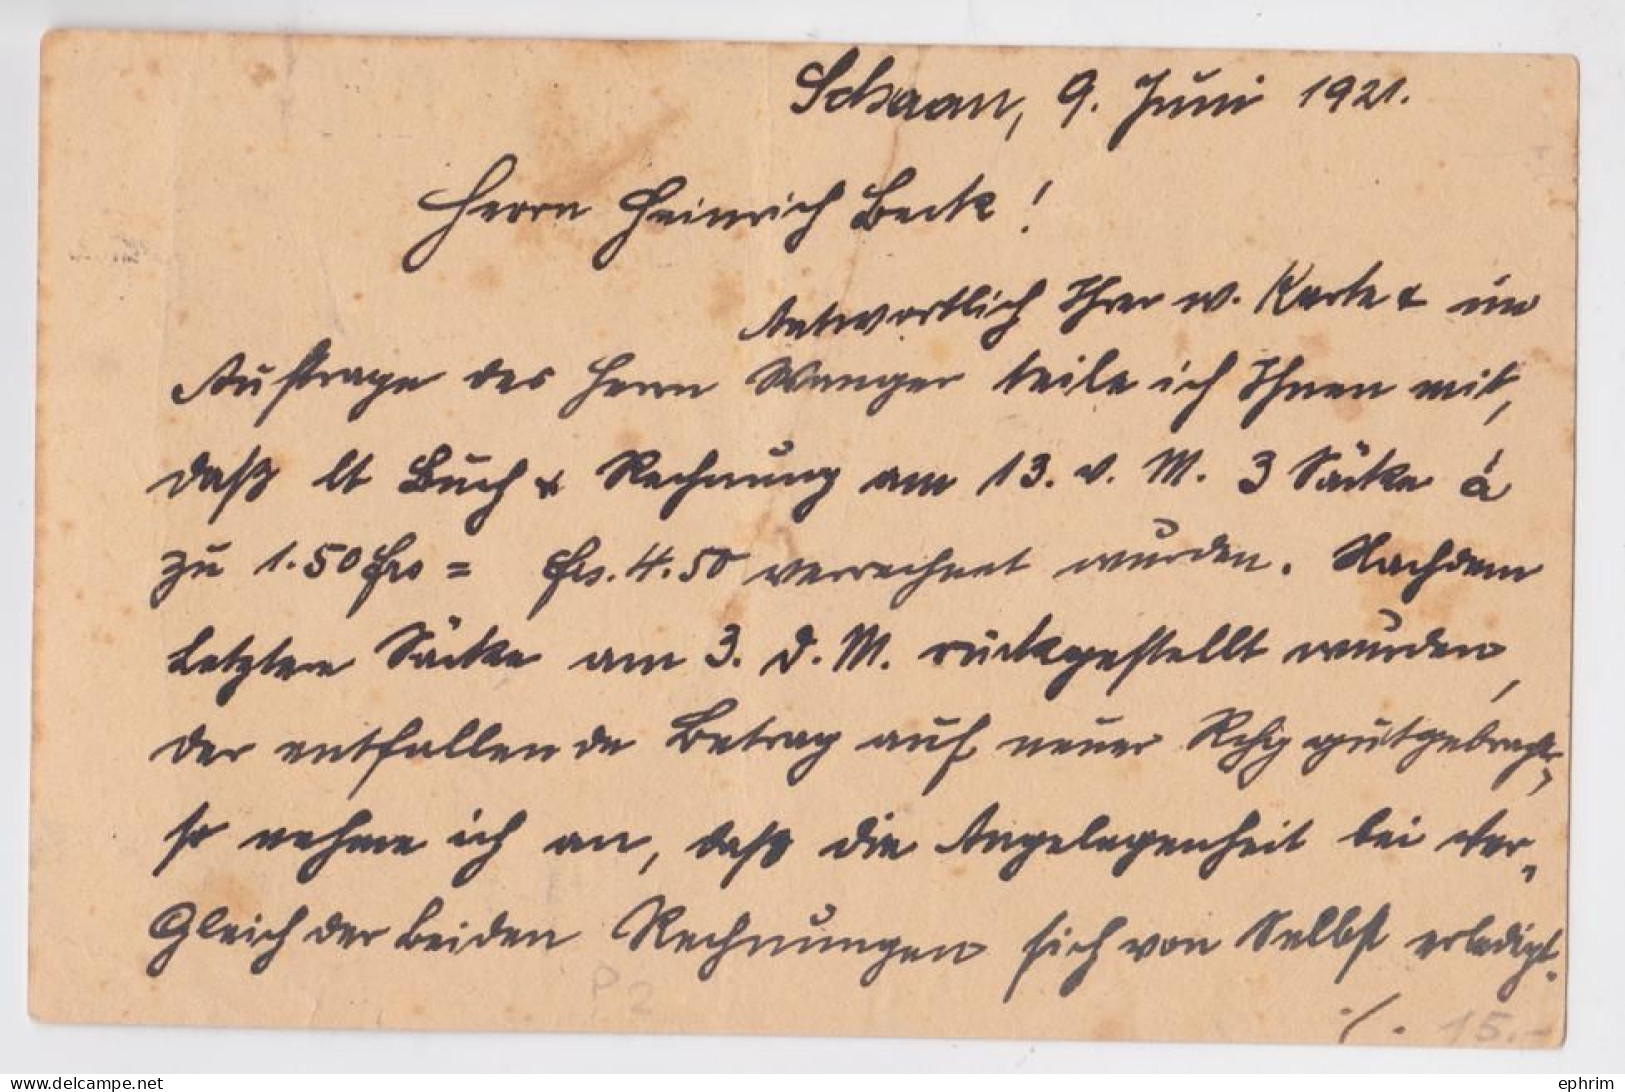 Schaan, 9. Juni 1921.
Herrn Heinrich Beck!
Antwortlich Ihrer w. Karte & im
Auftrage des Herrn Wanger teile ich Ihnen mit,
daß lt Buch & Rechnung am 13. v. M. 3 Säcke à
zu 1.50 frs = frs. 4.50 verrechnet wurden. Nachdem
letztere Säcke am 3. d. M. rückgestellt wurden,
der entfallende Betrag auf neuer Rchg gutgebracht,
so nehme ich an, daß die Angelegenheit bei Ver-
Gleich der beiden Rechnungen sich von Selbst erledigt.
P2
./. 15.-
delcampe.net
ephrim